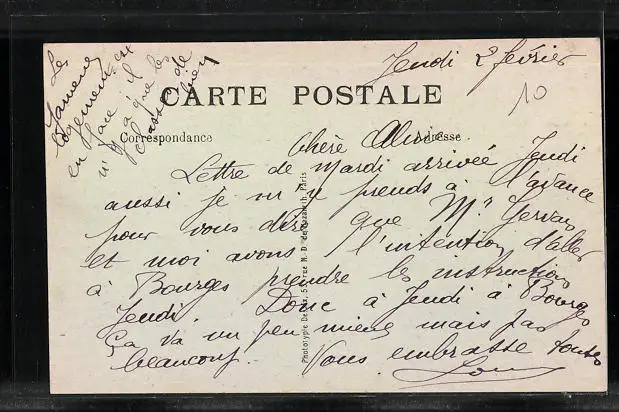 Jeudi 2 février
10
CARTE POSTALE
Correspondance
Adresse
Chère
Lettre de Mardi arrivée Jeudi
aussi je m'y prends à l'avance
pour vous dire que Mr
et moi avons l'intention d'aller
à Bourges prendre les instructions
Jeudi. Donc à Jeudi à Bourges
Ça va un peu mieux mais pas
beaucoup. Vous embrasse toutes
Les
logement est
en face il
n'y a que les
chasse
Phototypie 5, rue N.-D. de Nazareth, Paris